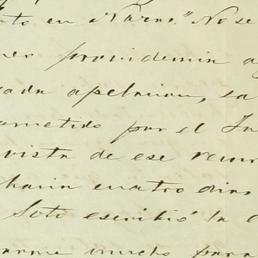 to en "Varas." No se
nes providencia a
gada apelacion, sa
ometido por el Ju
vista de ese recur
charin cuatro dias
Soto escribió la C
arme mucho para